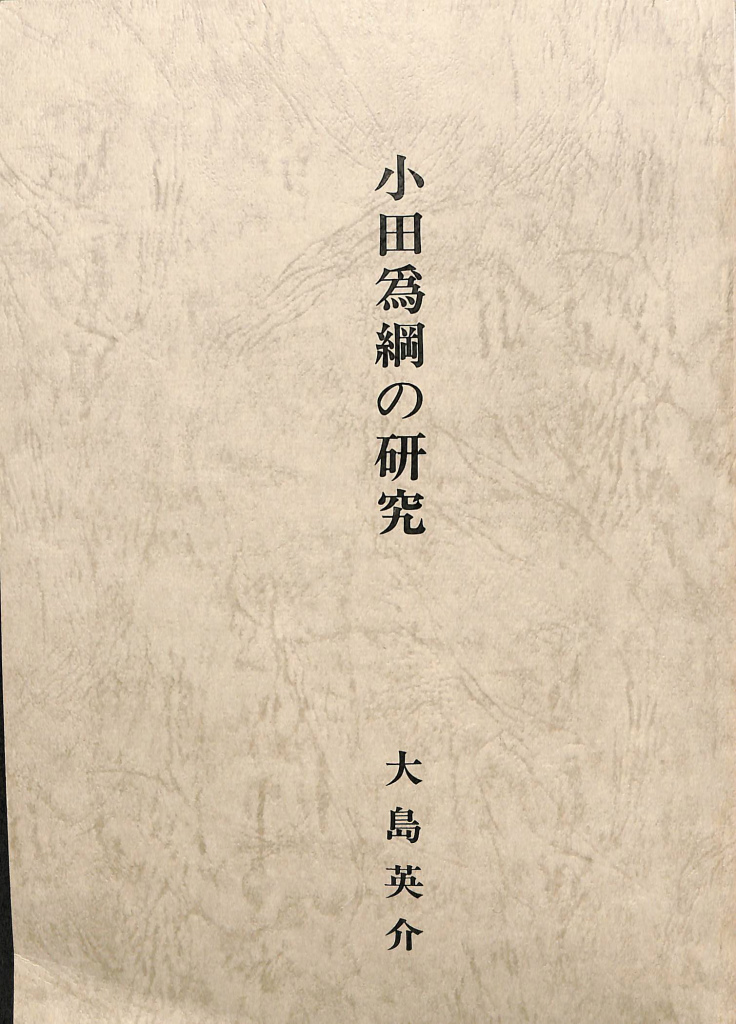 小田爲綱の研究
大島英介